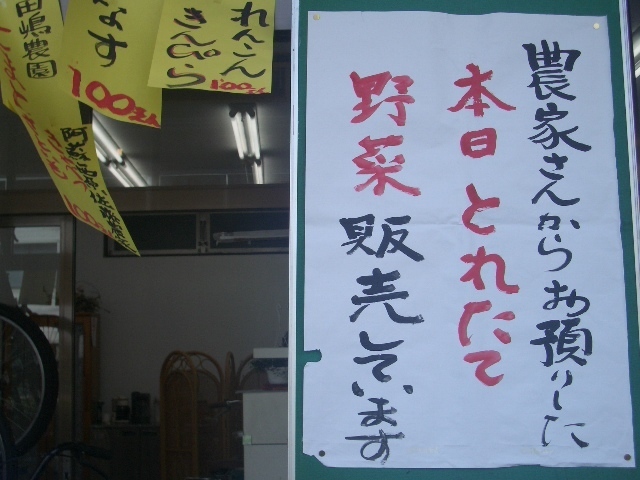 農家さんからお預りした
本日とれたて
野菜販売しています
れんこん
きんぴら
100えん
なす
100えん
田嶋農園